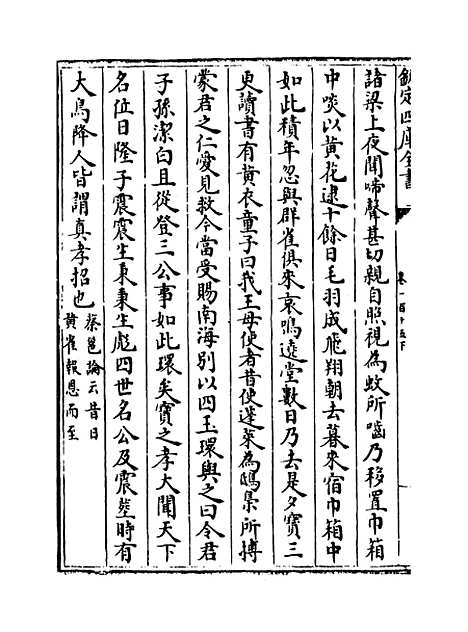 欽定四庫全書
卷一百十五下
諸梁上夜聞啼聲甚切親自照視為蚊所囓乃移置巾箱
中啖以黄花逮十餘日毛羽成飛翔朝去暮来宿巾箱中
如此積年忽與群雀俱来哀鳴遶堂數日乃去是夕寳三
更讀書有黄衣童子曰我王母使者昔使蓬萊為鴟梟所搏
蒙君之仁愛見救今當受賜南海别以四玉環與之曰令君
子孫潔白且從登三公事如此環矣寳之孝大聞天下
名位日隆子震震生秉秉生彪四世名公及震塟時有
大鳥降人皆謂真孝招也
蔡邕論云昔日
黄雀報恩而至